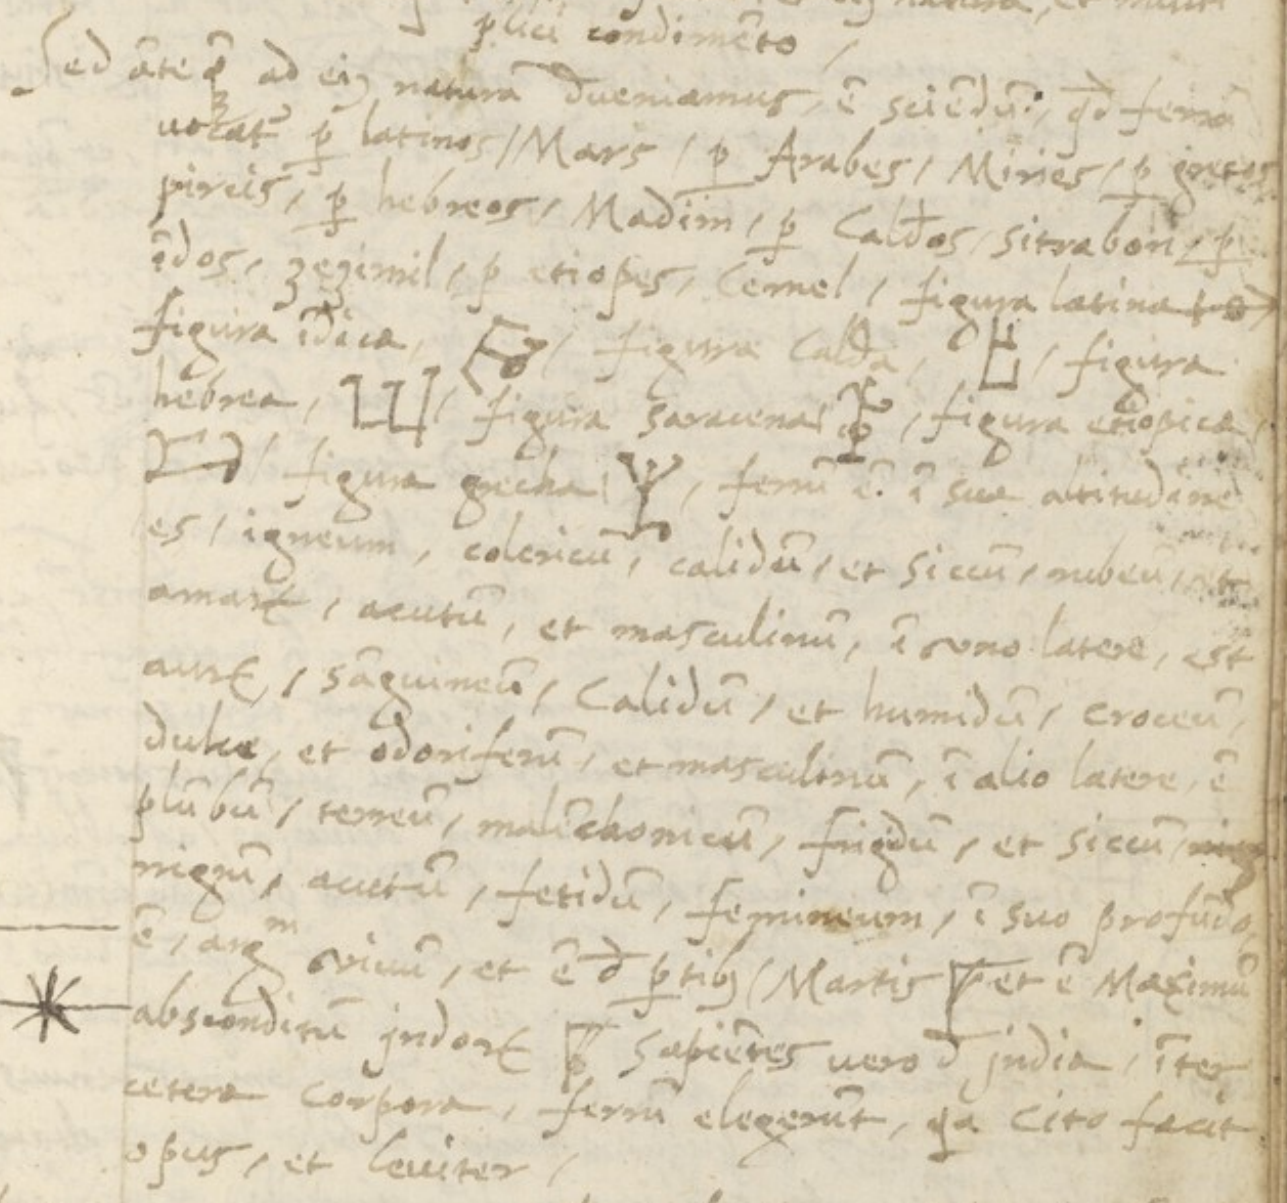 natura, et multi
plici condimēto /
Sed āteq̄ ad eiꝰ naturā dueniamus, ē sciēdū, qd ferrū
vocat᷑ ꝑ latinos / Mars / ꝑ Arabes / Miries / ꝑ grecos
pireis, ꝑ hebreos / Madim, ꝑ Caldos / sitrabon, ꝑ
īdos, zezimil, ꝑ etiopes, Cemel / figura latina
figura īdica, / figura Calda, / figura
hebrea, / figura saracena / , figura etiopica,
/ figura grecha / , ferrū ē ī sua altitudine
es / igneum, colericū, calidū / et siccū, rubeū, et
amarꝝ, acutū, et masculinū, ī vno latere, est
aurꝝ, sāguineū, Calidū / et humidū, croceū,
dulce, et odoriferū, et masculinū, ī alio latere, ē
plūbū, terreū, malīchonicū, frigidū, et siccū,
nigrū, acutū, fetidū, femineum, ī suo profūdo,
ē, argm vivū, et ē d̄ ꝑtibꝰ / Martis et ē Maximū
absconditū jndorꝝ sapiētes vero d̄ jndia, īter
cetera corpora, ferrū elegerūt, qa cito facit
opus, et leviter,